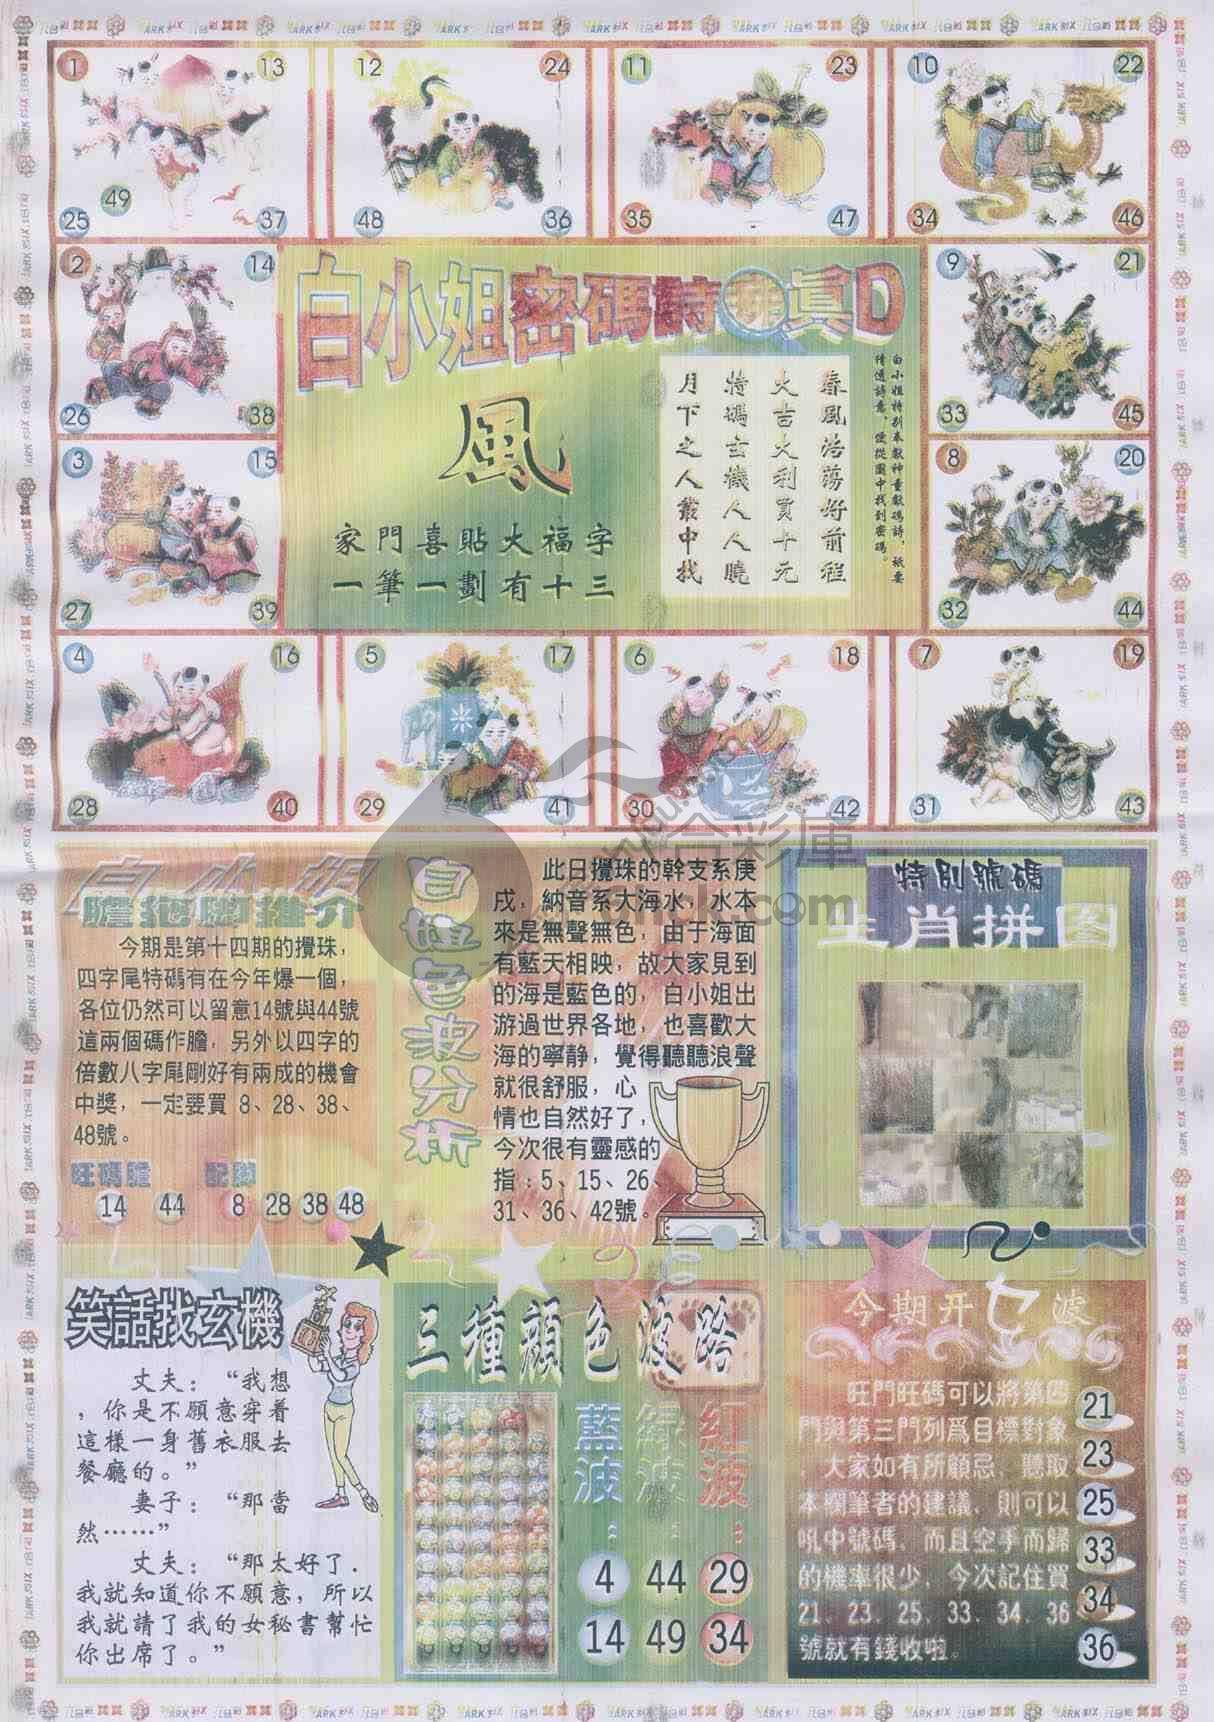 1 13 12 24 11 23 10 22
49
25 37 48 36 35 47 34 46
2 14 9 21
26 38 33 45
3 15 8 20
27 39 32 44
4 16 5 17 6 18 7 19
28 40 29 41 30 42 31 43
白小姐密碼詩 真D
風
家門喜貼大福字
一筆一劃有十三
白小姐特別奉獻神童獻碼詩，祇要
猜透詩意，便從圖中找到密碼。
春風浩蕩好前程
大吉大利買十元
特碼玄機人人曉
月下之人叢中找
白小姐
膽拖腳推介
今期是第十四期的攪珠，
四字尾特碼有在今年爆一個，
各位仍然可以留意14號與44號
這兩個碼作膽，另外以四字的
倍數八字尾剛好有兩成的機會
中獎，一定要買 8、28、38、
48號。
旺碼膽 配腳
14 44 8 28 38 48
白姐色波分析
此日攪珠的幹支系庚
戌，納音系大海水，水本
來是無聲無色，由于海面
有藍天相映，故大家見到
的海是藍色的，白小姐出
游過世界各地，也喜歡大
海的寧靜，覺得聽聽浪聲
就很舒服，心
情也自然好了，
今次很有靈感的
指：5、15、26、
31、36、42號。
特別號碼
生肖拼图
笑話找玄機
丈夫：“我想
，你是不願意穿着
這樣一身舊衣服去
餐廳的。”
妻子：“那當
然……”
丈夫：“那太好了．
我就知道你不願意，所以
我就請了我的女秘書幫忙
你出席了。”
三種顏色波路
藍波： 綠波： 紅波：
4 44 29
14 49 34
今期开七波
旺門旺碼可以將第四
門與第三門列爲目標對象
大家如有所顧忌，聽取
本欄筆者的建議，則可以
吼中號碼，而且空手而歸
的機率很少，今次記住買
21、23、25、33、34、36
號就有錢收啦。
21
23
25
33
34
36
六合彩庫